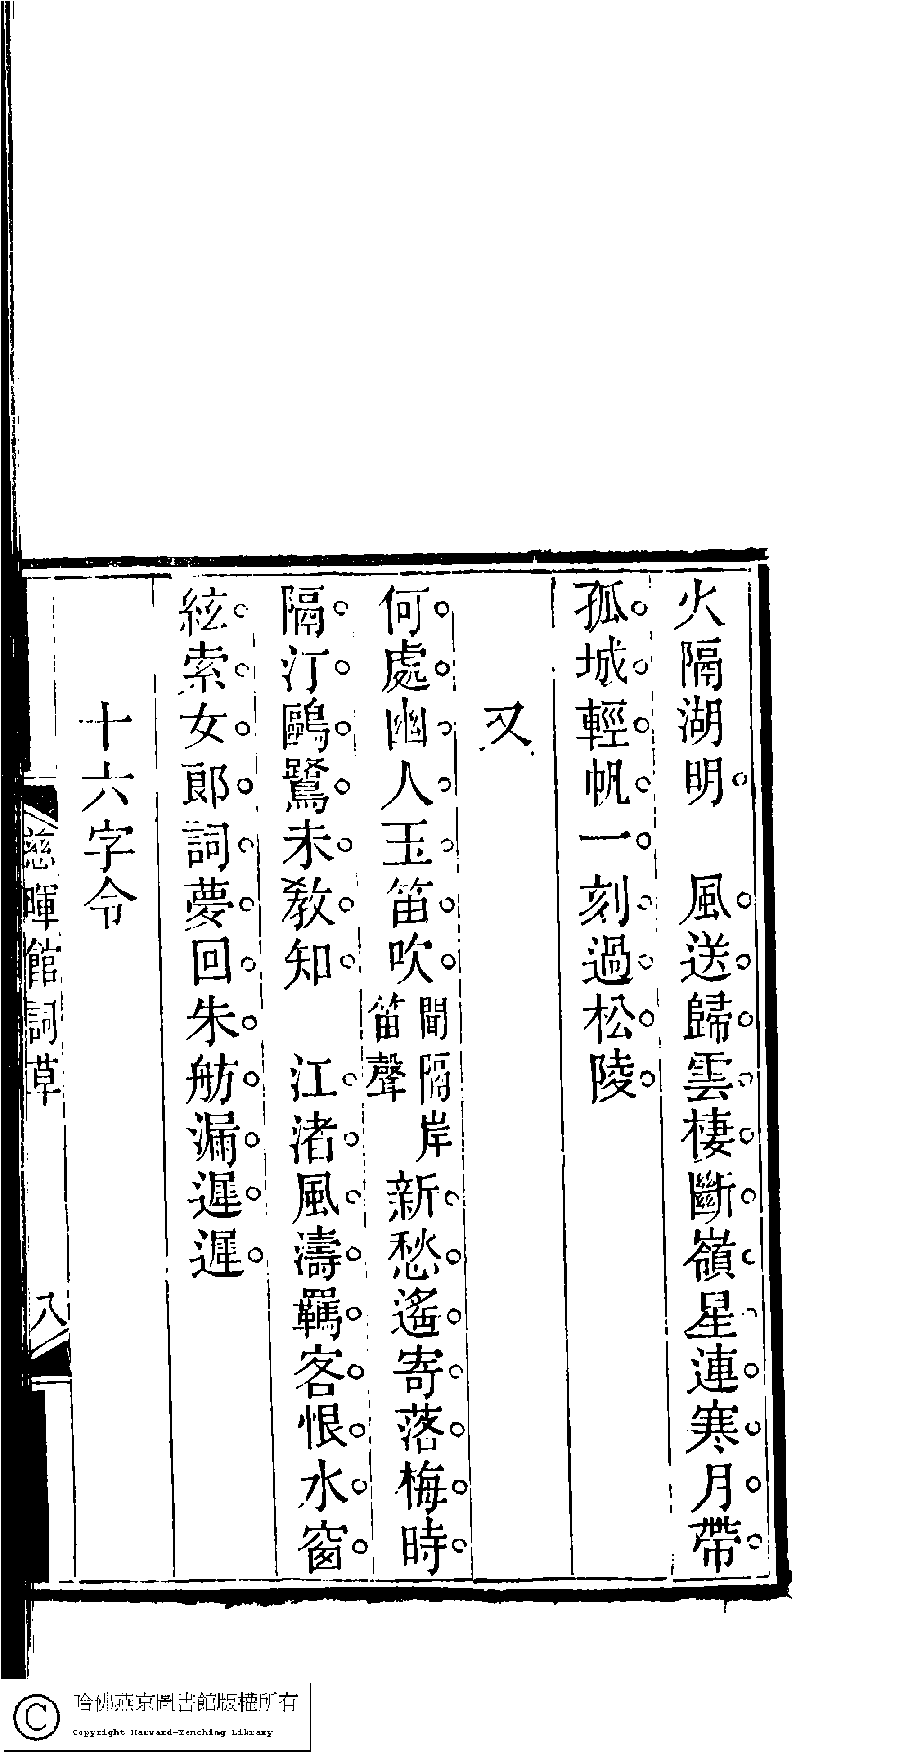 火隔湖明　風送歸雲棲斷嶺星連寒月帶
孤城輕帆一刻過松陵
又
何處幽人玉笛吹聞隔岸笛聲新愁遙寄落梅時
隔汀鷗鷺未教知　江渚風濤羈客恨水窗
絃索女郎詞夢回朱舫漏遲遲
十六字令
慈暉館詞草　八
哈佛燕京圖書館版權所有
Copyright Harvard-Yenching Library